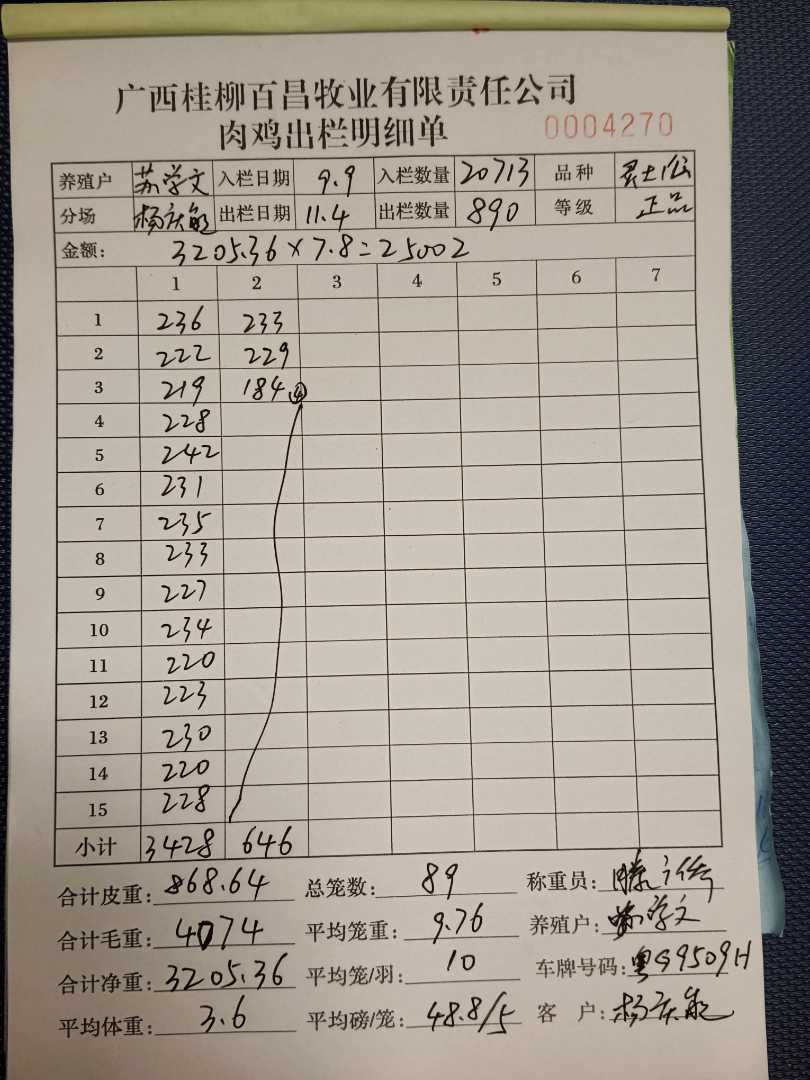 广西桂柳百昌牧业有限责任公司
肉鸡出栏明细单 0004270
养殖户 苏学文 入栏日期 9.9 入栏数量 20713 品种
分场 杨庆能 出栏日期 11.4 出栏数量 890 等级 正品
金额: 3205.36×7.8=25002
1 2 3 4 5 6 7
1 236 233
2 222 229
3 219 184 ④
4 228
5 242
6 231
7 235
8 233
9 227
10 234
11 220
12 223
13 230
14 220
15 228
小计 3428 646
合计皮重: 868.64 总笼数: 89 称重员:
合计毛重: 4074 平均笼重: 9.76 养殖户: 苏学文
合计净重: 3205.36 平均笼/羽: 10 车牌号码: 粤G9509H
平均体重: 3.6 平均磅/笼: 48.8/5 客 户: 杨庆能